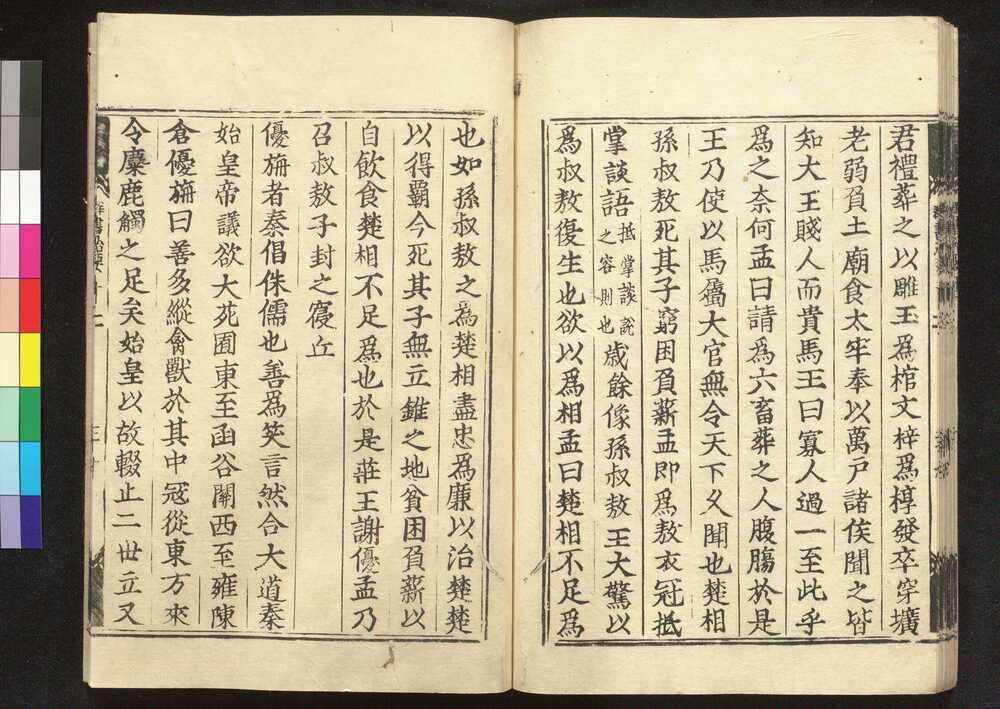 君禮葬之以雕玉爲棺文梓爲椁發卒穿壙
老弱負土廟食太牢奉以萬戶諸侯聞之皆
知大王賤人而貴馬王曰寡人過一至此乎
爲之奈何孟曰請爲六畜葬之人腹膓於是
王乃使以馬屬大官無令天下久聞也楚相
孫叔敖死其子窮困負薪孟即爲敖衣冠抵
掌談語抵掌談說之容則也歲餘像孫叔敖王大驚以
爲叔敖復生也欲以爲相孟曰楚相不足爲
也如孫叔敖之爲楚相盡忠爲廉以治楚楚
以得霸今死其子無立錐之地貧困負薪以
自飲食楚相不足爲也於是莊王謝優孟乃
召叔敖子封之寢丘
優旃者秦倡侏儒也善爲笑言然合大道秦
始皇帝議欲大苑囿東至函谷關西至雍陳
倉優旃曰善多縱禽獸於其中冠從東方來
令麋鹿觸之足矣始皇以故輟止二世立又
群書治要十二